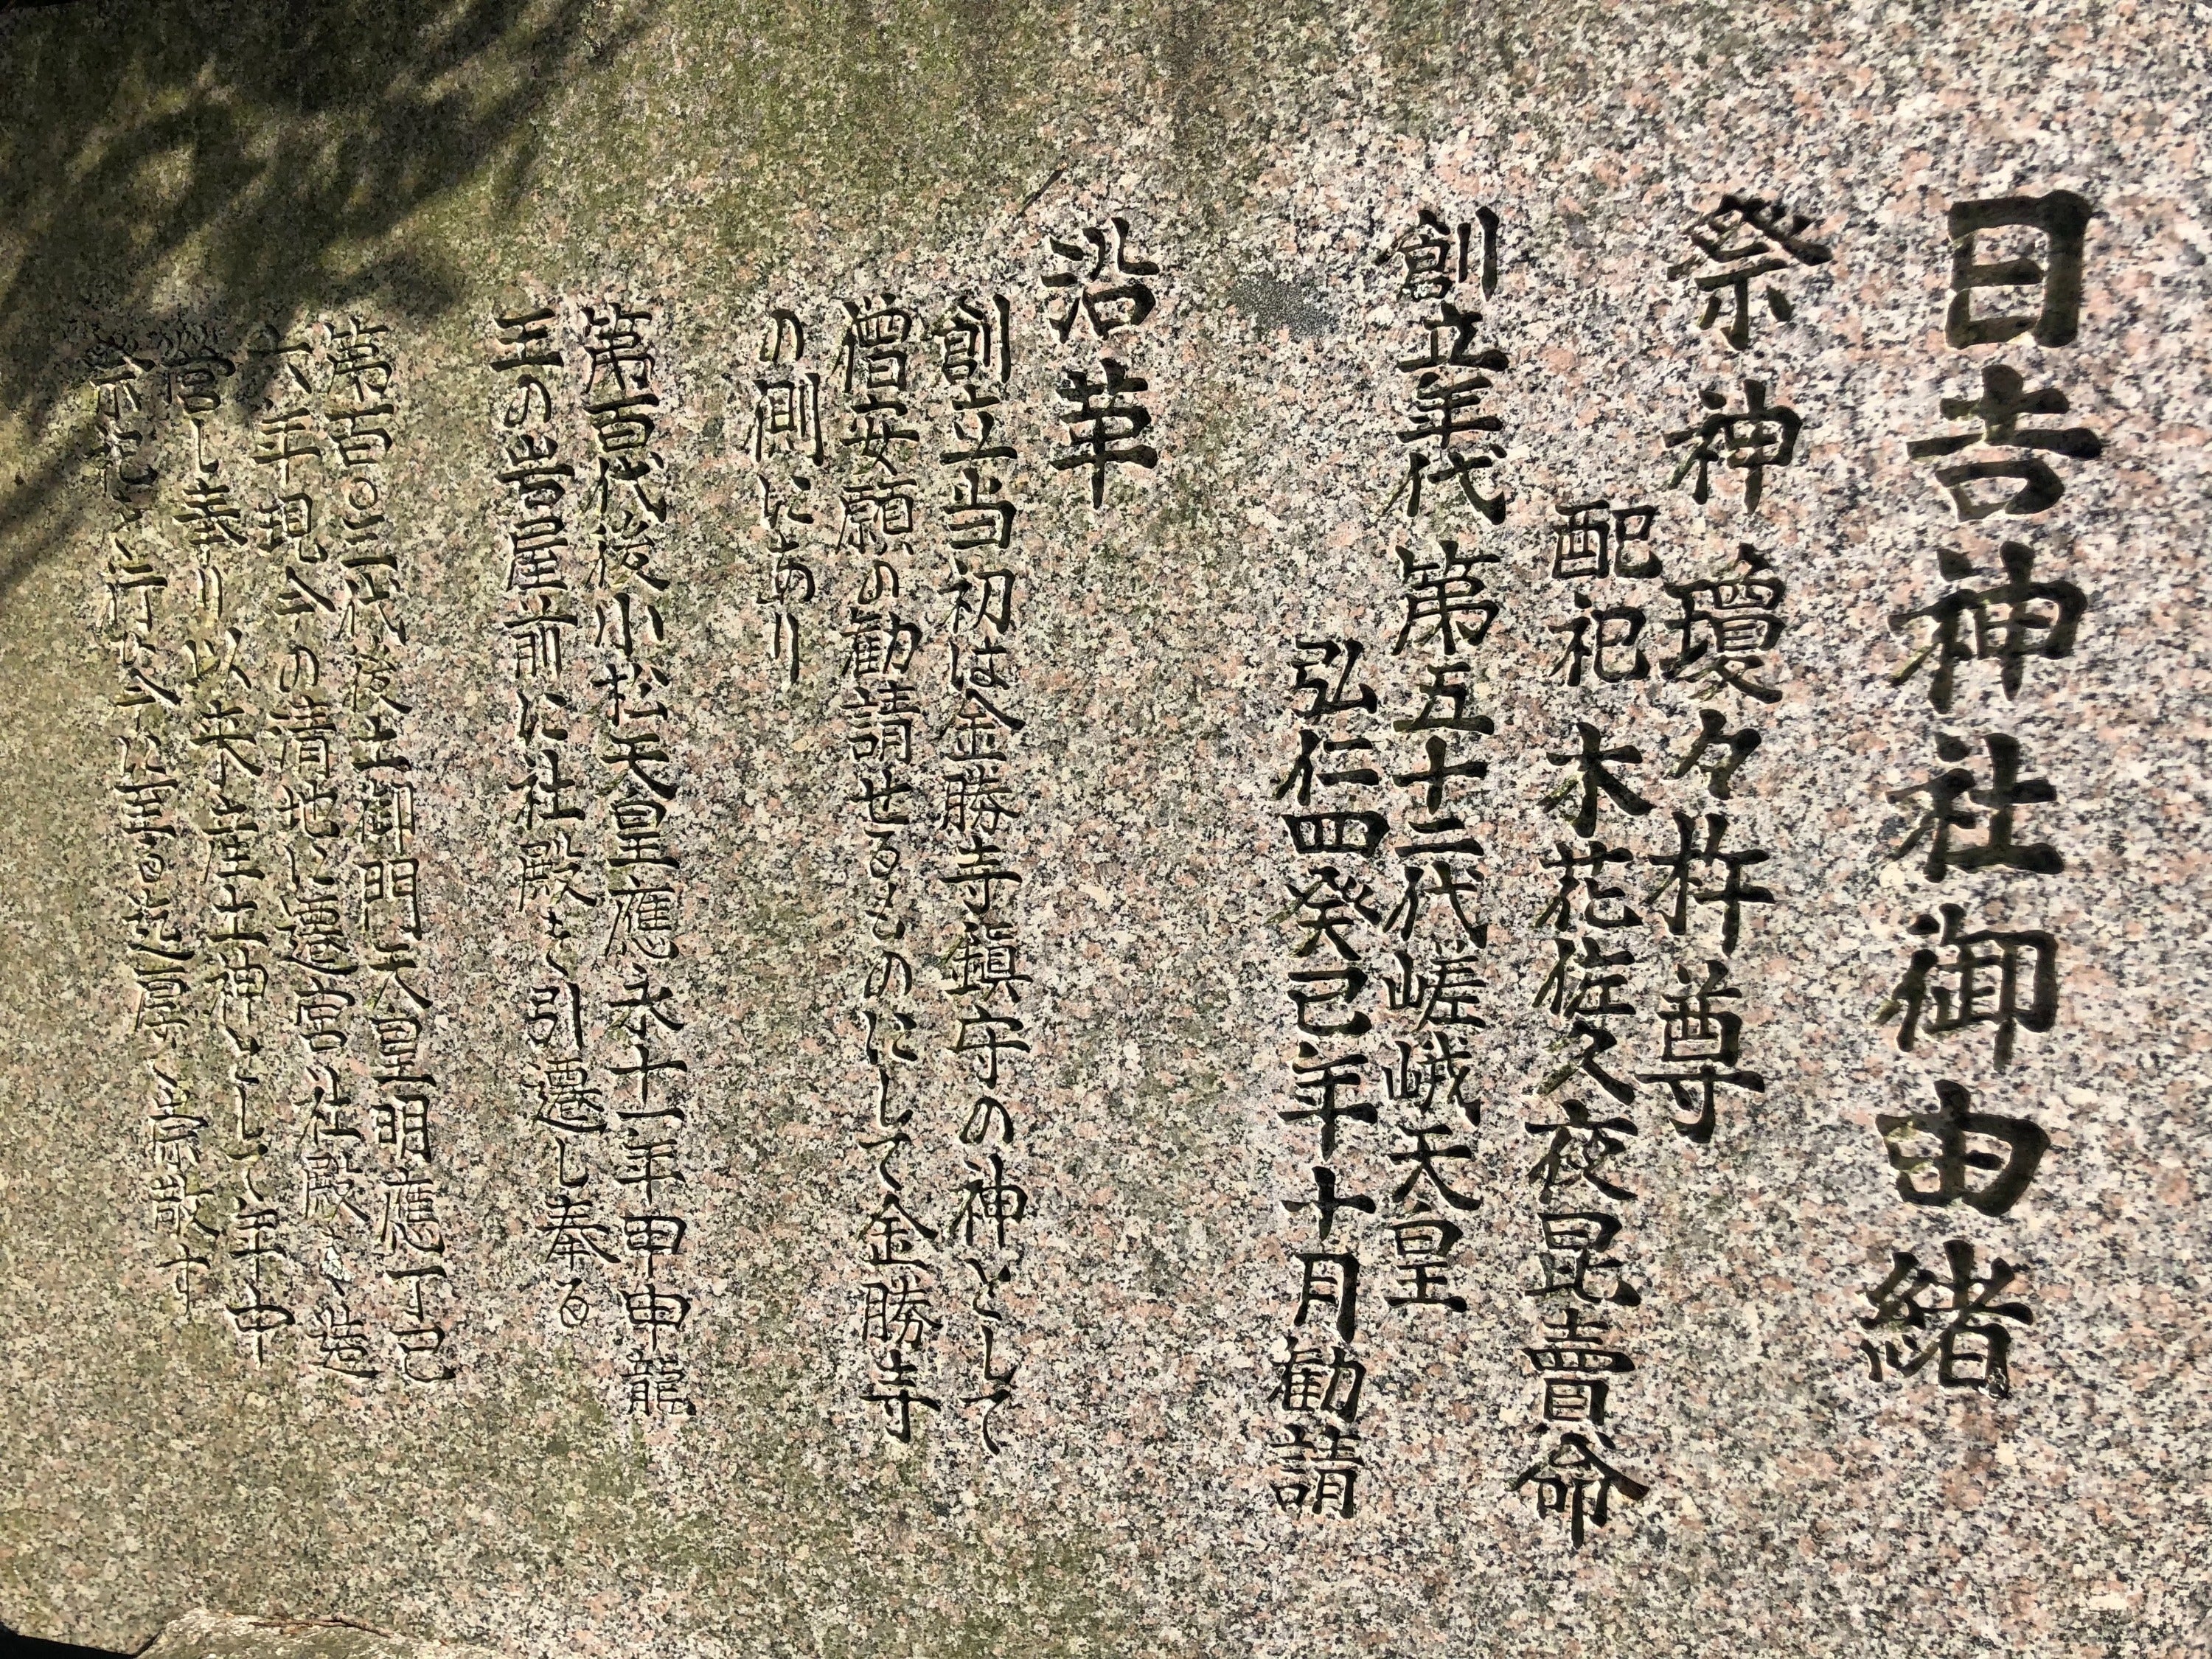 日吉神社御由緒
祭神 瓊々杵尊
配祀 木花佐久夜毘賣命
創立年代 第五十二代嵯峨天皇
弘仁四癸巳年十月勧請
沿革
創立当初は金勝寺鎮守の神として
僧安願の勧請せるものにして金勝寺
の側にあり
第百代後小松天皇應永十一年甲申龍
王の岩屋前に社殿を引遷し奉る
第百〇三代後土御門天皇明應丁巳
六年現今の清地に遷宮社殿を造
営し奉り以来産土神として年中
祭祀を行ひ今に至る迄厚く崇敬す